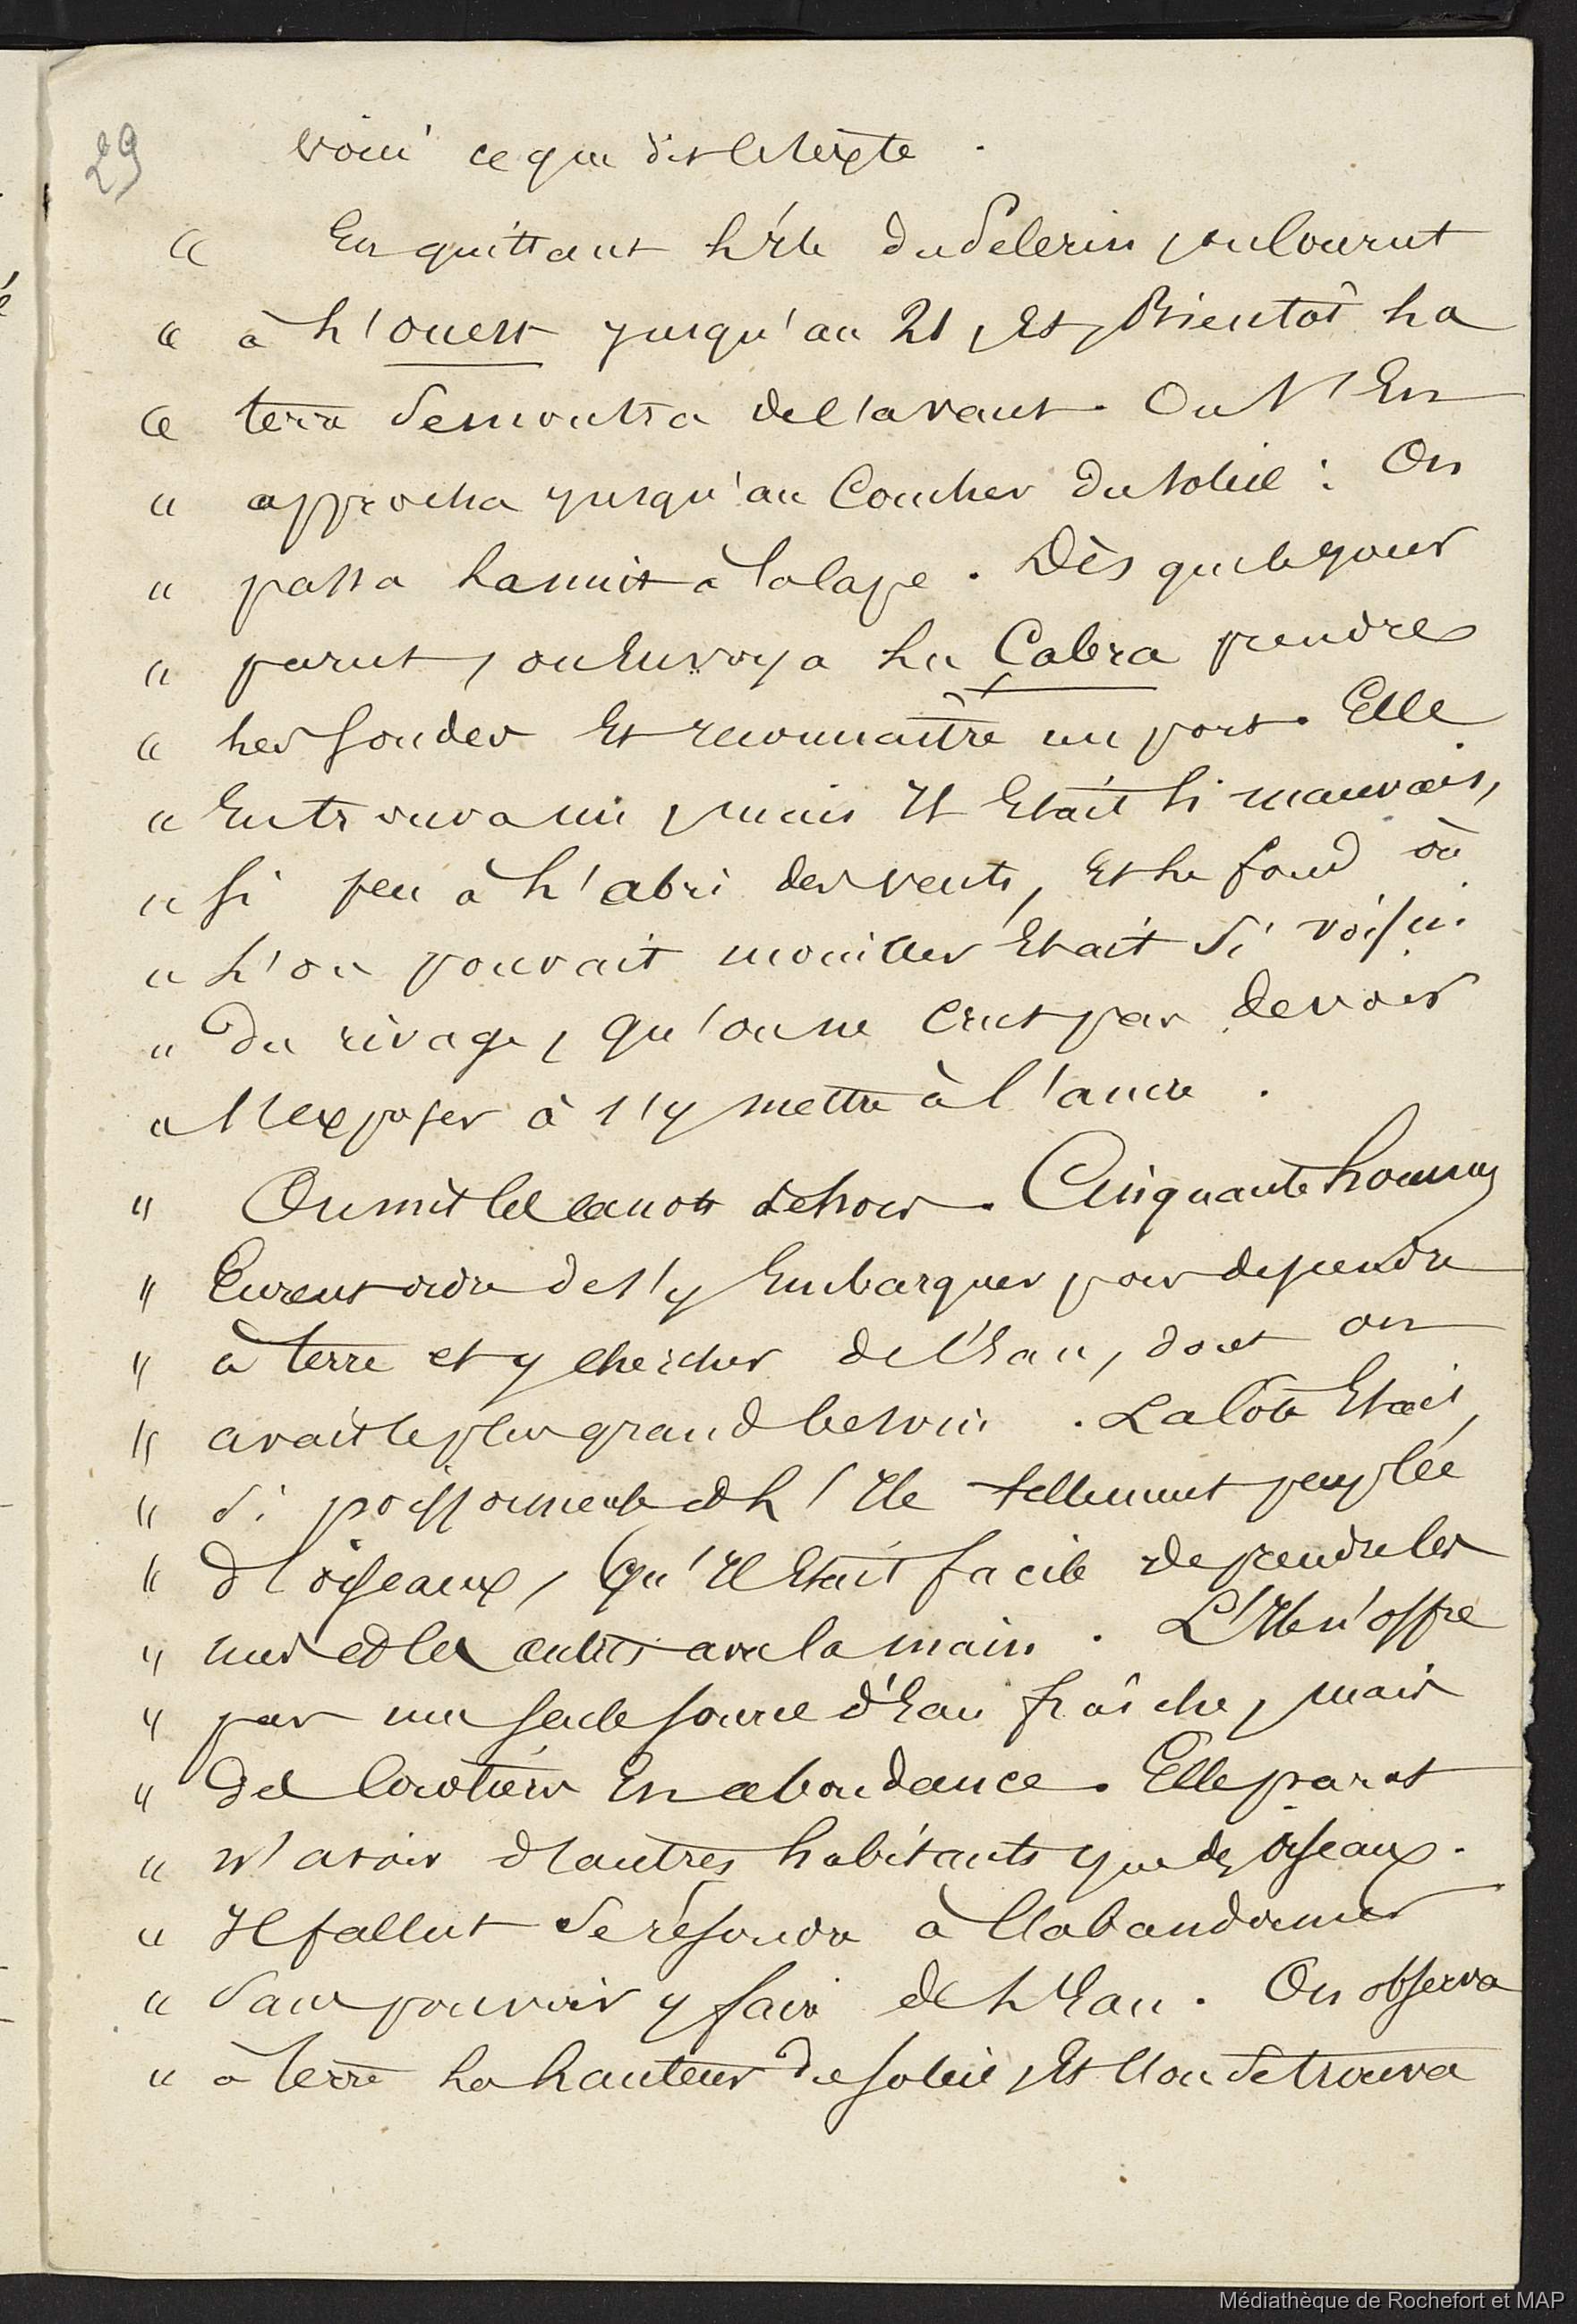 29
Voici ce que dit le texte .
" En quittant l'île du Pelerin, on courut
" à l'ouest jusqu'au 21, Et, Bientôt la
" terre se montra de l'avant. On s'En
" approcha jusqu'au Coucher du soleil : On
" passa la nuit à la cape. Dès que le jour
" parut, on Envoya la Cabra prendre
" les sondes Et reconnaître un port. Elle
" En trouva un, mais Il Etait si mauvais,
" si peu à l'abri des vents, Et le fond où
" l'on pouvait mouiller Etait si voisin
" du rivage, qu'on ne Crut pas devoir
" s'exposer à s'y mettre à l'ancre .
" On mit les canots dehors. Cinquante hommes
" Eurent ordre de s'y Embarquer pour descendre
" à terre et y chercher de l'Eau, dont on
" avait le plus grand besoin . La Côte Etait
" si poissonneuse et l'Ile tellement peuplée
" d'oiseaux, Qu'Il Etait facile de prendre les
" uns et les autres avec la main . L'Ile n'offre
" pas une seule source d'Eau fraîche, mais
" des Cocotiers En abondance. Elle parut
" n'avoir d'autres habitants que des oiseaux.
" Il fallut se résoudre à l'abandonner
" sans pouvoir y faire de l'Eau. On observa
" à terre la hauteur du soleil, Et l'on se trouva
Médiathèque de Rochefort et MAP